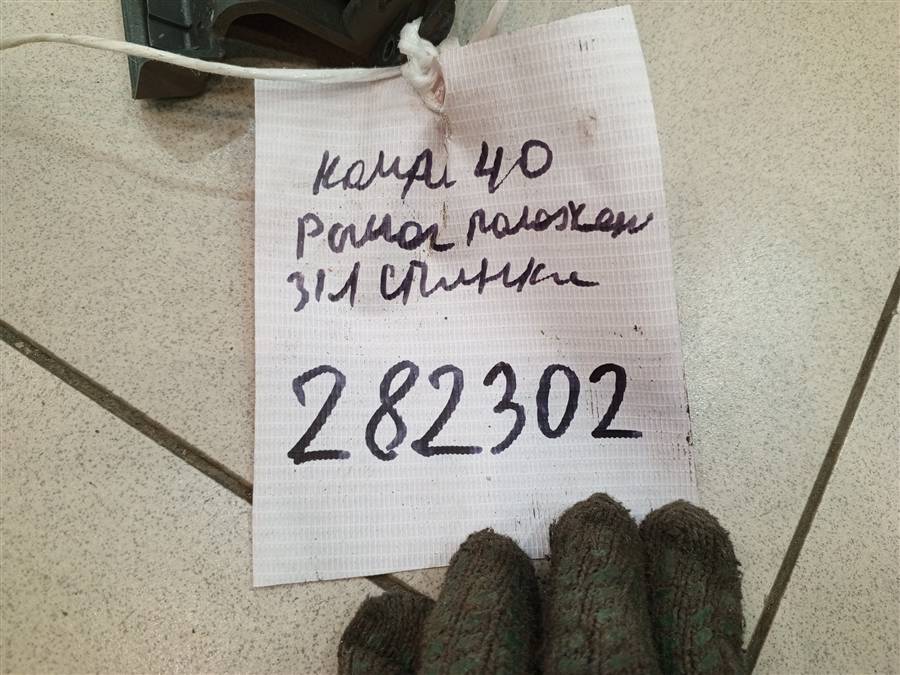 Камри 40
Рычаг положен
з/л спинки
282302